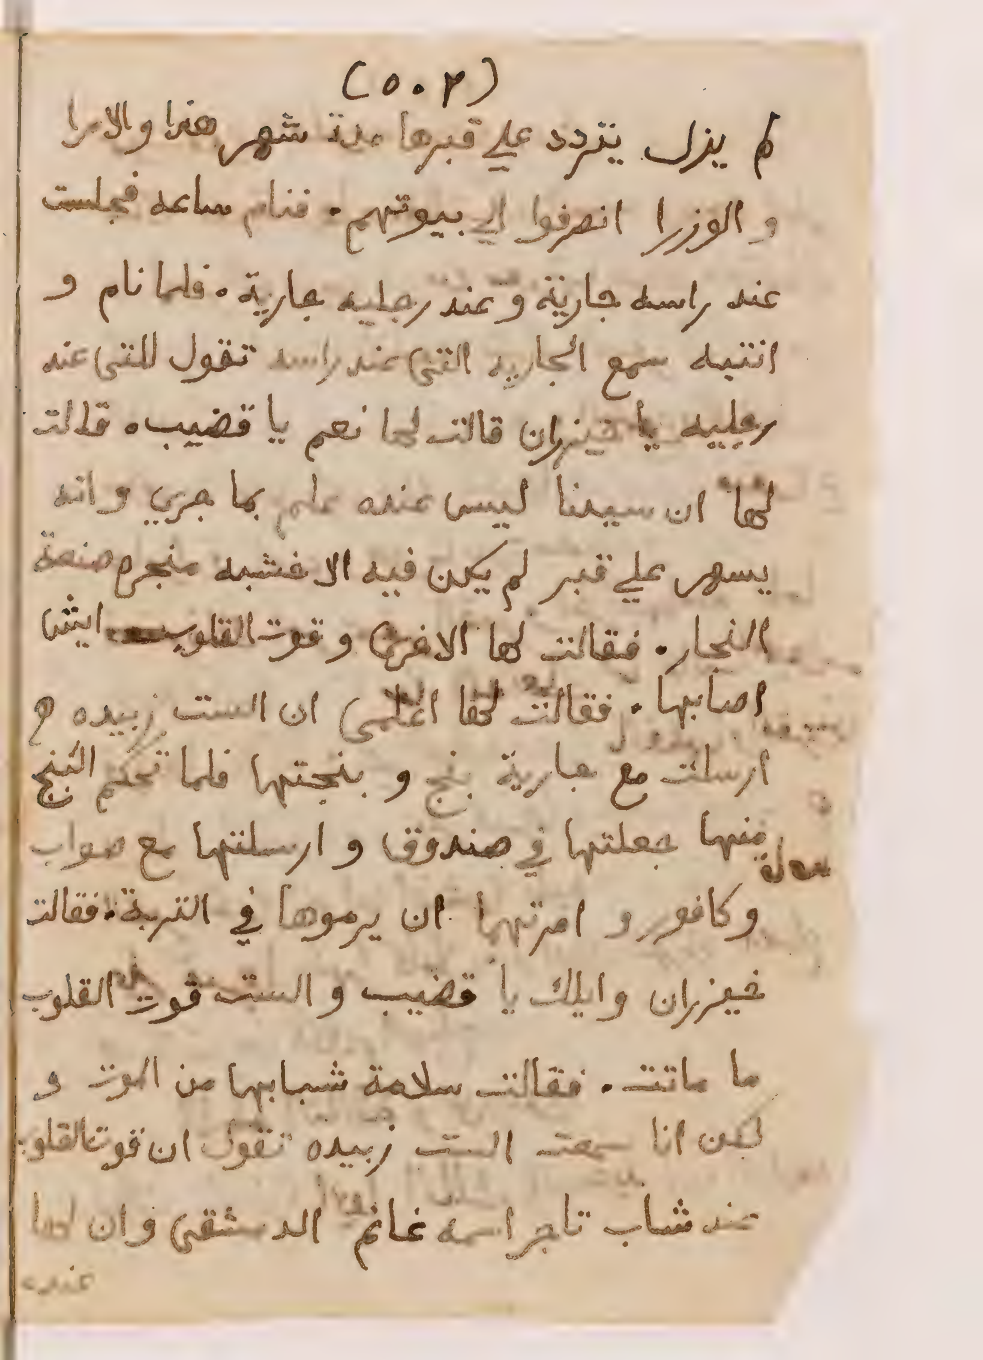 (٥٠٢)
لم يزل يتردد علي قبرها مدة شهر هذا والامرا
والوزرا انصرفوا الي بيوتهم. فنام ساعه فجلست
عند راسه جارية وعند رجليه جارية. فلما نام و
انتبه سمع الجاريه التي عند راسه تقول للتي عند
رجليه يا خيزران قالت لها نعم يا قضيب. قالت
لها ان سيدنا ليس عنده علم بما جري وانه
يسهر علي قبر لم يكن فيه الا خشبه منجره صنعة
النجار. فقالت لها الاخري وقوت القلوب ايش
اصابها. فقالت لها اعلمي ان الست زبيده
ارسلت مع جارية بنج و بنجتها فلما تحكم البنج
منها جعلتها في صندوق و ارسلتها مع صواب
وكافور و امرتهما ان يرموها في التربة. فقالت
خيزران وايلك يا قضيب و الست قوت القلوب
ما ماتت. فقالت سلامة شبابها من الموت و
لكن انا سمعت الست زبيده تقول ان قوت القلوب
عند شاب تاجر اسمه غانم الدمشقي وان لها
عنده